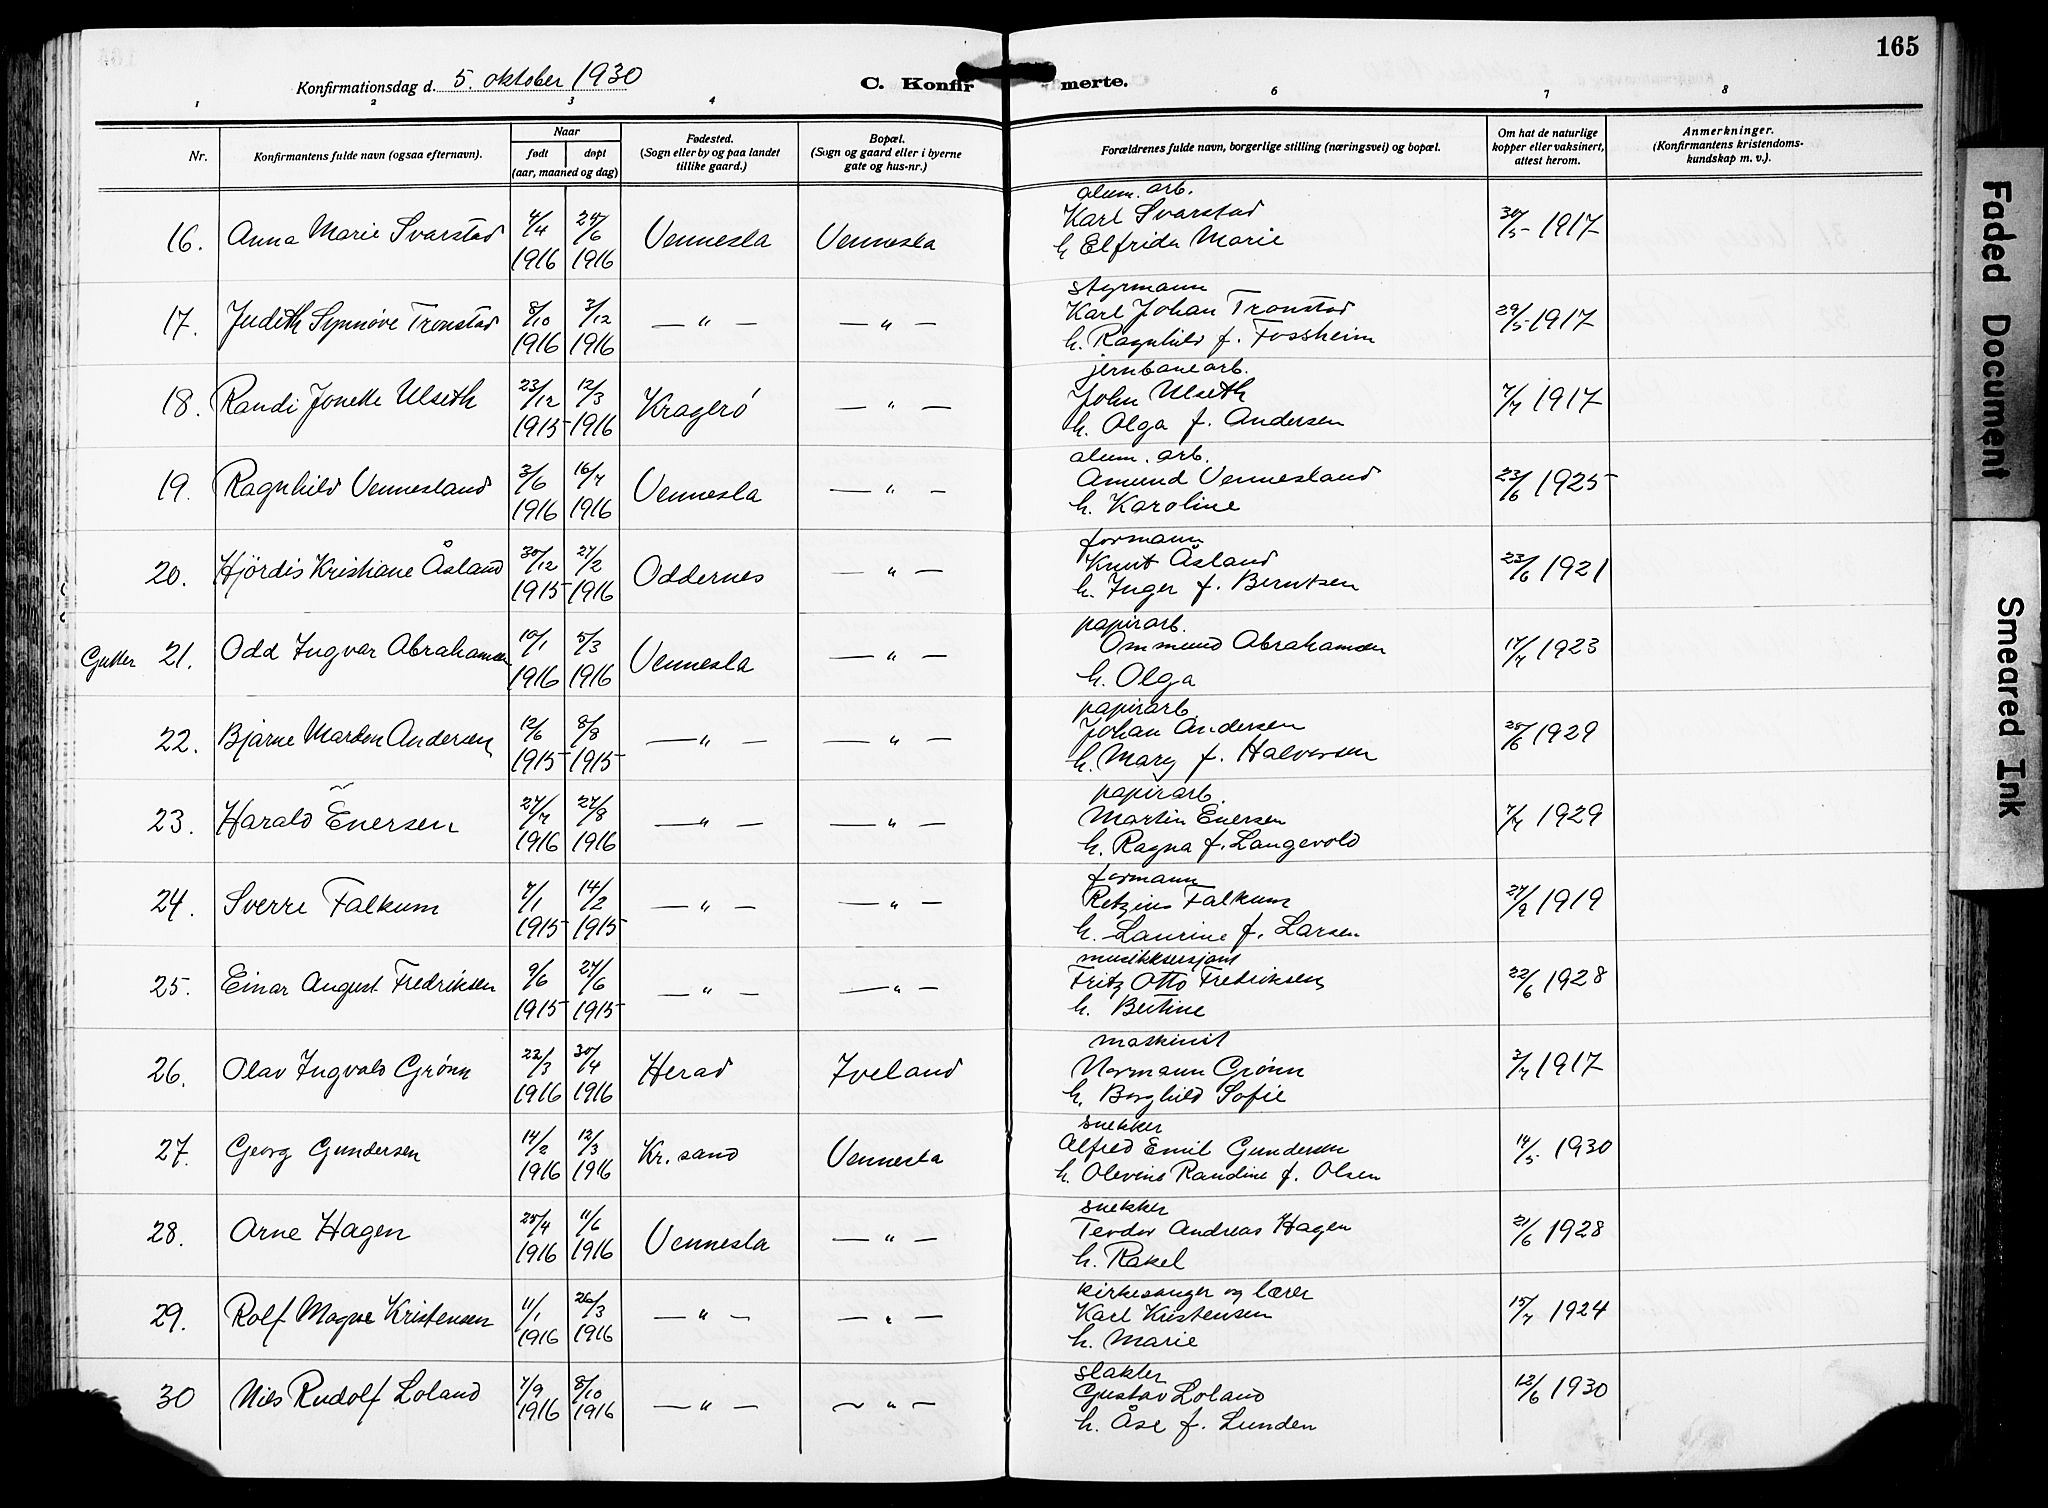 165
Konfirmationsdag d. 5. oktober 1930
C. Konfirmerte.
1 2 3 4 5 6 7 8
Nr. Konfirmantens fulde navn (ogsaa efternavn). Naar født døpt (aar, maaned og dag) Fødested. (Sogn eller by og paa landet tillike gaard.) Bopæl. (Sogn og gaard eller i byerne gate og hus-nr.) Forældrenes fulde navn, borgerlige stilling (næringsvei) og bopæl. Om hat de naturlige kopper eller vaksinert, attest herom. Anmerkninger. (Konfirmantens kristendomskundskap m. v.).
alum. arb.
16. Anna Marie Svarstad 4/4 1916 24/6 1916 Vennesla Vennesla Karl Svarstad 30/5 1917
h Elfrida Marie
styrmann
17. Judith Synnøve Tronstad 8/10 1916 3/12 1916 — " — — " — Karl Johan Tronstad 29/5 1917
h. Ragnhild f. Fossheim
jernbanearb.
18. Randi Jonette Ulseth 23/12 1915 12/3 1916 Kragerø — " — John Ulseth 7/7 1917
h. Olga f. Andersen
alum. arb.
19. Ragnhild Vennesland 3/6 1916 16/7 1916 Vennesla — " — Amund Vennesland 23/6 1925
h. Karoline
formann
20. Hjördis Kristiane Åsland 30/12 1915 27/2 1916 Oddernes — " — Knut Åsland 23/6 1921
h. Inger f. Berntsen
papirarb.
Gutter 21. Odd Ingvar Abrahamsen 10/1 1916 5/3 1916 Vennesla — " — Ommund Abrahamsen 17/7 1923
h. Olga
papirarb
22. Bjarne Mardon Andersen 12/6 1915 8/8 1915 — " — — " — Johan Andersen 28/6 1929
h. Mary f. Halvorsen
papirarb.
23. Harald Enersen 27/7 1916 27/8 1916 — " — — " — Martin Enersen 7/7 1929
h. Ragna f. Langevold
formann
24. Sverre Falkum 7/1 1915 14/2 1915 — " — — " — Retzius Falkum 27/9 1919
h. Laurine f. Larsen
musikksersjant
25. Einar August Fredriksen 9/6 1915 27/6 1915 — " — — " — Fritz Otto Fredriksen 22/6 1928
h. Bertine
maskinist
26. Olav Ingvald Grönn 22/3 1916 30/4 1916 Herad Iveland Normann Grönn 3/7 1917
h. Borghild Sofie
snekker
27. Georg Gundersen 14/2 1916 12/3 1916 Kr.sand Vennesla Alfred Emil Gundersen 14/5 1930
h. Olevine Randine f. Olsen
snekker
28. Arne Hagen 25/4 1916 11/6 1916 Vennesla — " — Teodor Andreas Hagen 21/6 1928
h. Rakel
kirkesanger og lærer
29. Rolf Magne Kristensen 11/1 1916 26/3 1916 — " — — " — Karl Kristensen 15/7 1924
h. Marie
slakter
30 Nils Rudolf Loland 7/9 1916 8/10 1916 — " — — " — Gustav Loland 12/6 1930
h. Åse f. Lunden
Faded Document
Smeared Ink